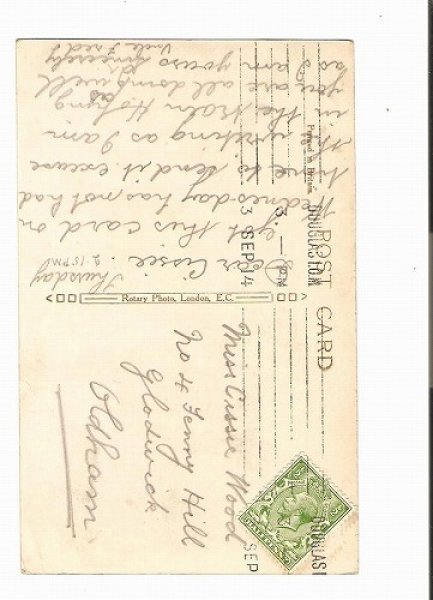 POST CARD
Printed in Britain
Rotary Photo, London, E.C.
Thursday
2-15 PM
Dear Cissie.
get this card on
Wednesday has not had
time to send it excuse
the writing as I am
in the train Hoping
you are all doing well
as I am yours sincerely
Uncle Fred
Miss Cissie Wood
No 4 Fenny Hill
Glodwick
Oldham
DOUGLAS I.O.M
3. — PM
3 SEP 14
DOUGLAS I
SEP
HALFPENNY